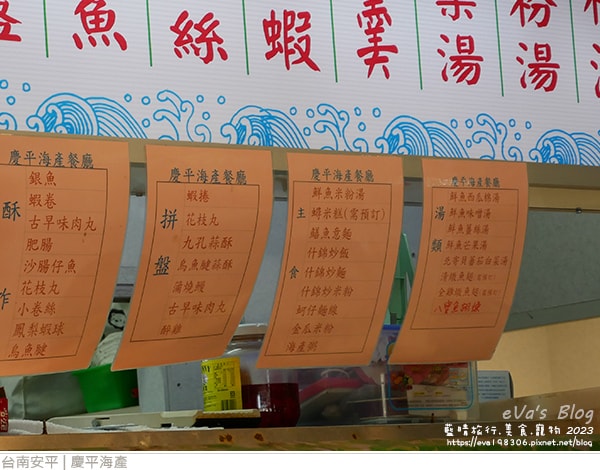 魚
絲
蝦
羹
湯
粉湯
慶平海產餐廳
酥炸
銀魚
蝦卷
古早味肉丸
肥腸
沙腸仔魚
花枝丸
小卷絲
鳳梨蝦球
烏魚腱
慶平海產餐廳
拼盤
蝦捲
花枝丸
九孔蒜酥
烏魚腱蒜酥
蒲燒鰻
古早味肉丸
醉雞
慶平海產餐廳
主食
鮮魚米粉湯
蟳米糕(需預訂)
鱔魚意麵
什錦炒飯
什錦炒麵
什錦炒米粉
蚵仔麵線
金瓜米粉
海產粥
慶平海產餐廳
湯類
鮮魚西瓜綿湯
鮮魚味噌湯
鮮魚薑絲湯
eVa's Blog
藍晴旅行.美食.寵物 2023
https://eva198306.pixnet.net/blog
台南安平 | 慶平海產